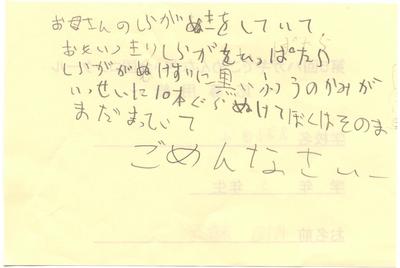 お母さんのしらがぬきをしていて
おもいっきりしらがをひっぱたら
しらががぬけずに黒いふつうのかみが
いっせいに10本ぐらぬけてぼくはそのま
まだまっていて
ごめんなさい